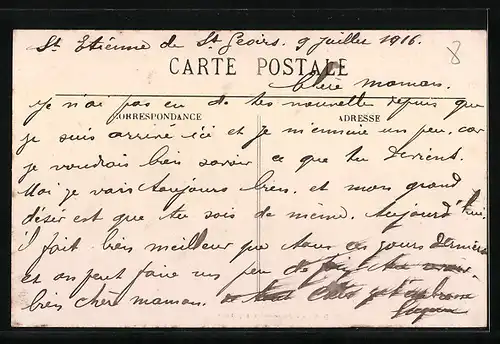 St Etienne de St Geoirs. 9 Juillet 1916.
8
CARTE POSTALE
Chère maman.
Je n'ai pas eu de tes nouvelle depuis que
CORRESPONDANCE
ADRESSE
je suis arrivé ici et je m'ennuie un peu, car
je voudrais bien savoir ce que tu devient.
Moi je vais toujours bien. et mon grand
désir est que tu sois de même. Aujourd'hui
il fait bien meilleur que tous ces jours derniers
et on peut faire un peu de
bien chère maman.